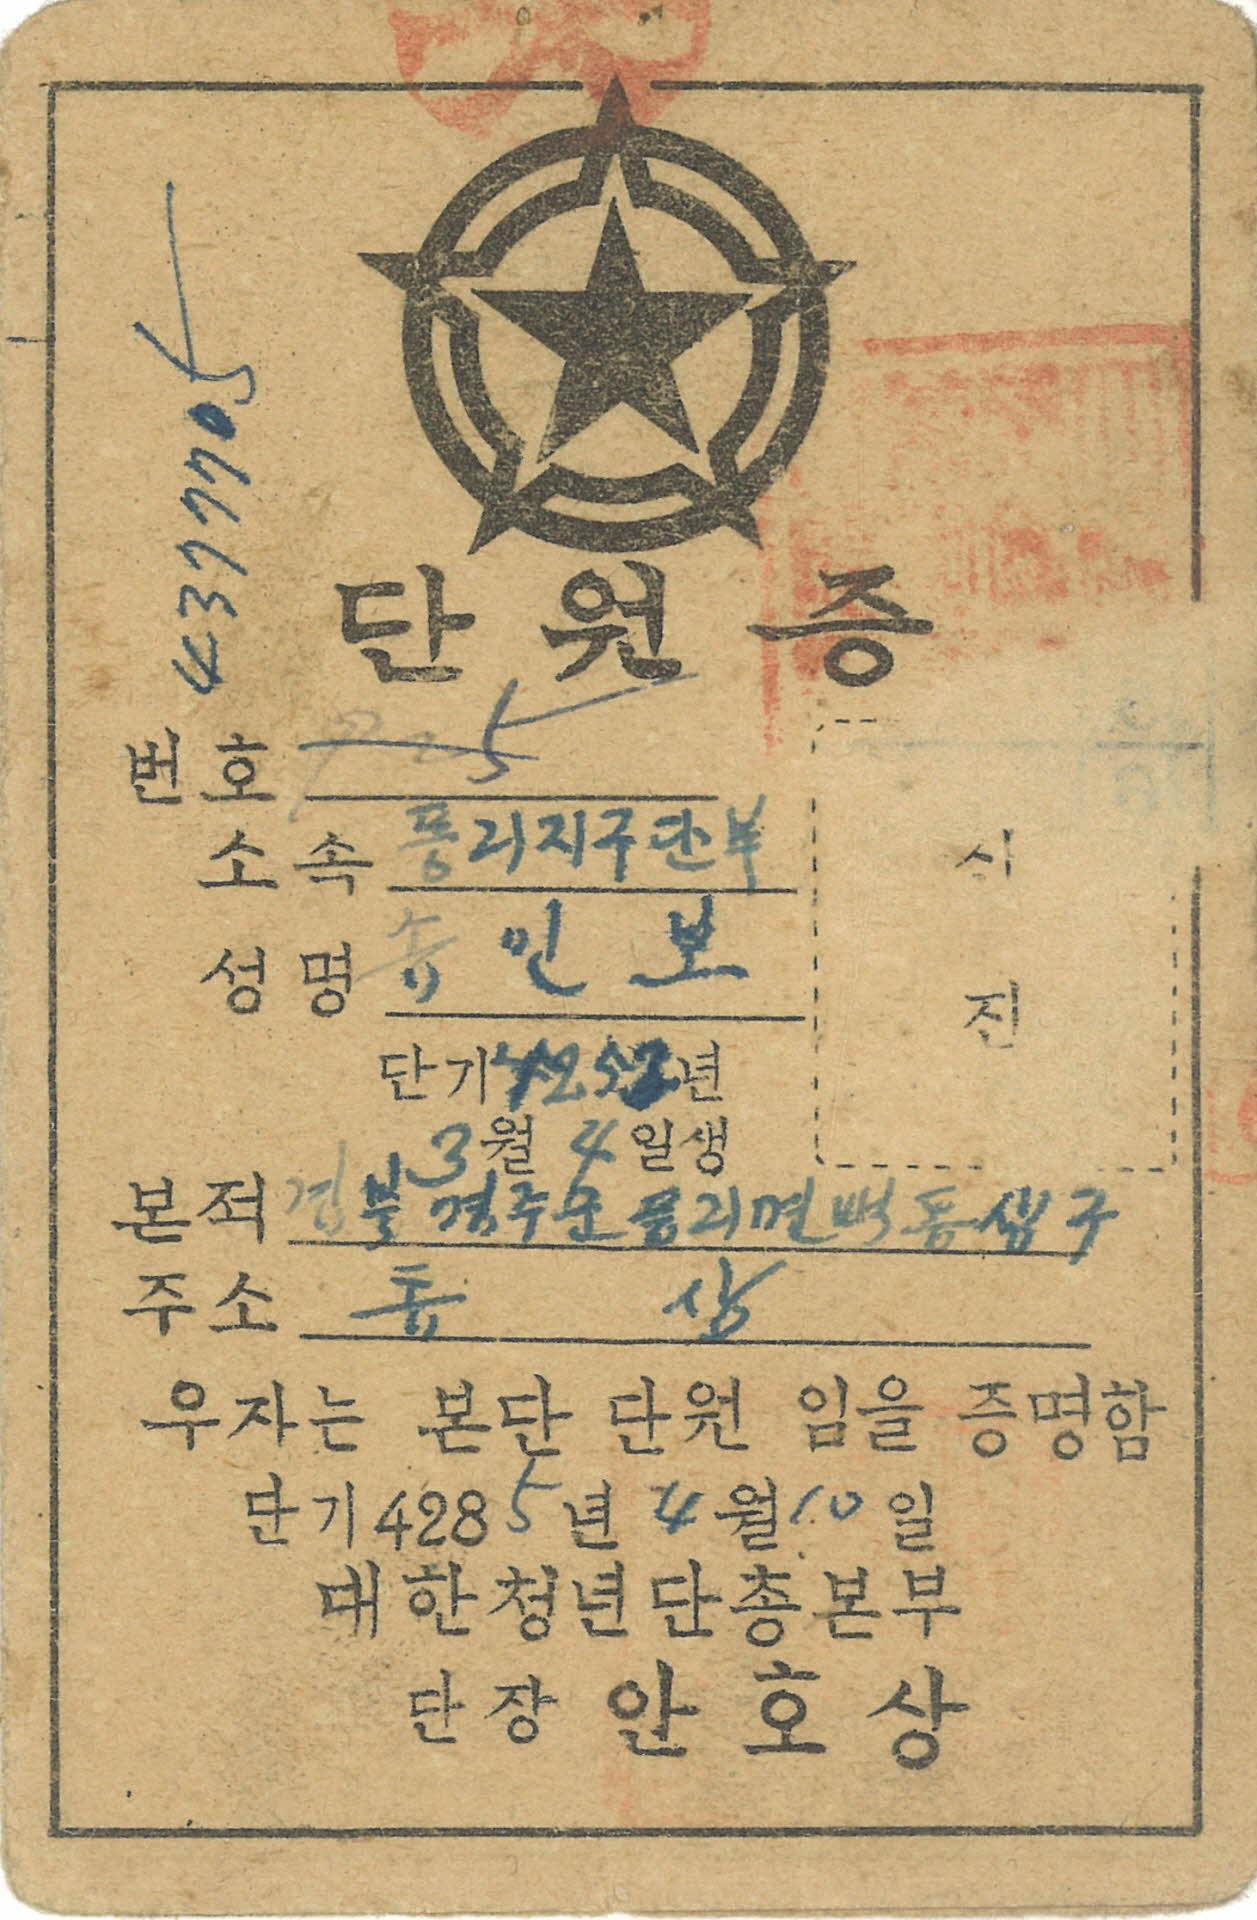 4377705
단원증
번호 5
소속 풍리지구단부
성명 송인보
단기 4252년
3월 4일생
사진
본적 경북 경주군 풍리면 백동 구
주소 동 상
우자는 본단 단원 임을 증명함
단기 4285년 4월 10일
대한청년단총본부
단장 안호상